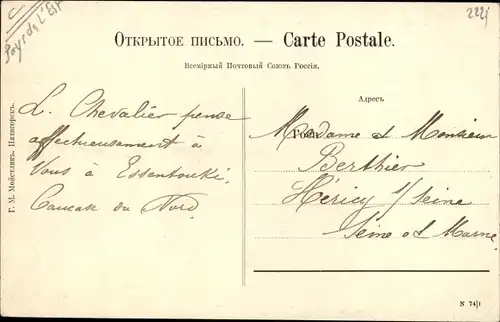 Pays de L'Est
222j
Открытое письмо. — Carte Postale.
Всемірный Почтовый Союзъ Россія.
Г. М. Мойстлик. Пятигорскъ.
L. Chevalier pense
affectueusement à
Vous à Essentouki.
Caucase du Nord
Адресъ
Madame et Monsieur
Berthier
Héricy s/ Seine
Seine et Marne.
N 74|1